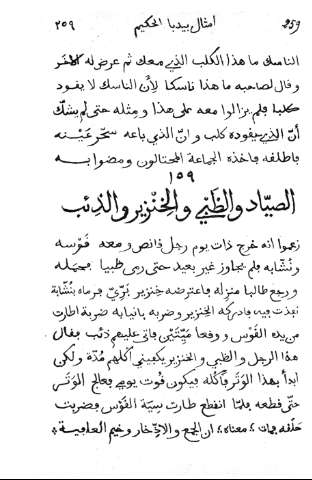 ٢٥٩ أمثال بيدبا الحكيم 259
الناسك ما هذا الكلب الذي معك ثم عرض له الآخر
وقال لصاحبه ما هذا ناسكا لأن الناسك لا يقود
كلبا فلم يزالوا معه على هذا ومثله حتى لم يشك
أن الذي يقوده كلب وان الذي باعه سحر عينه
فاطلقه فاخذه الجماعة المحتالون ومضوا به
١٥٩
الصياد والظبي والخنزير والذئب
زعموا انه خرج ذات يوم رجل قانص ومعه قوسه
ونشابه فلم يجاوز غير بعيد حتى رمى ظبيا فحمله
ورجع طالبا منزله فاعترضه خنزير بري فرماه بنشابة
نفذت فيه فادركه الخنزير وضربه بانيابه ضربة اطارت
من يده القوس ووقعا ميتين فاتى عليهم ذئب فقال
هذا الرجل والظبي والخنزير يكفيني أكلهم مدة ولكن
أبدأ بهذا الوتر فآكله فيكون قوت يومي فعالج الوتر
حتى قطعه فلما انقطع طارت سية القوس فضربت
حلقه فمات * معناه * ان الجمع والادخار وخيم العاقبة *